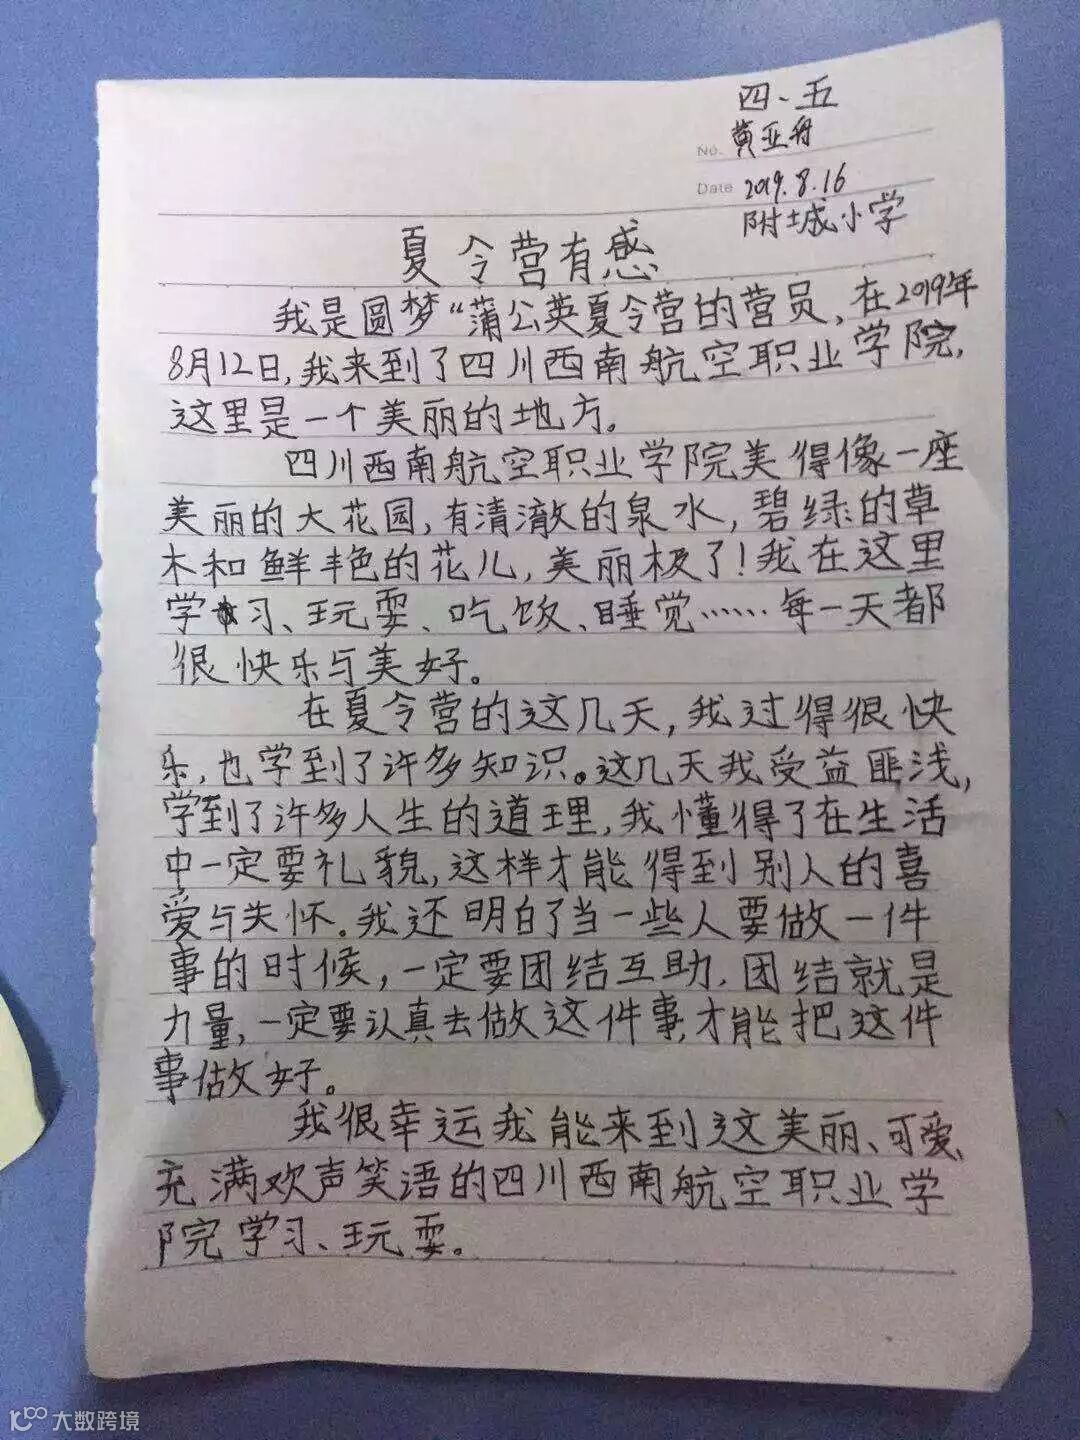 四、五
No. 黄亚舟
Date 2019.8.16
附城小学
夏令营有感
我是圆梦“蒲公英夏令营的营员,在2019年
8月12日,我来到了四川西南航空职业学院,
这里是一个美丽的地方。
四川西南航空职业学院美得像一座
美丽的大花园,有清澈的泉水,碧绿的草
木和鲜艳的花儿,美丽极了!我在这里
学习、玩耍、吃饭、睡觉……每一天都
很快乐与美好。
在夏令营的这几天,我过得很快
乐,也学到了许多知识。这几天我受益匪浅,
学到了许多人生的道理,我懂得了在生活
中一定要礼貌,这样才能得到别人的喜
爱与关怀。我还明白了当一些人要做一件
事的时候,一定要团结互助.团结就是
力量,一定要认真去做这件事,才能把这件
事做好。
我很幸运我能来到这美丽、可爱、
充满欢声笑语的四川西南航空职业学
院学习、玩耍。
大数跨境